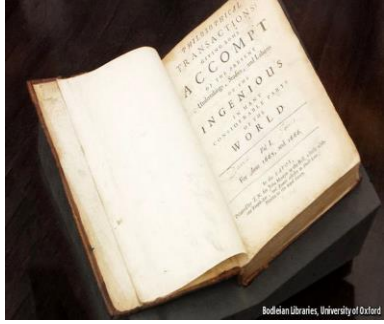 PHILOSOPHICAL
TRANSACTIONS:
GIVING SOME
ACCOMPT
OF THE PRESENT
Undertakings, Studies, and Labours
OF THE
INGENIOUS
IN MANY
CONSIDERABLE PARTS
OF THE
WORLD
Vol I.
For Anno 1665, and 1666.
In the SAVOY,
Bodleian Libraries, University of Oxford